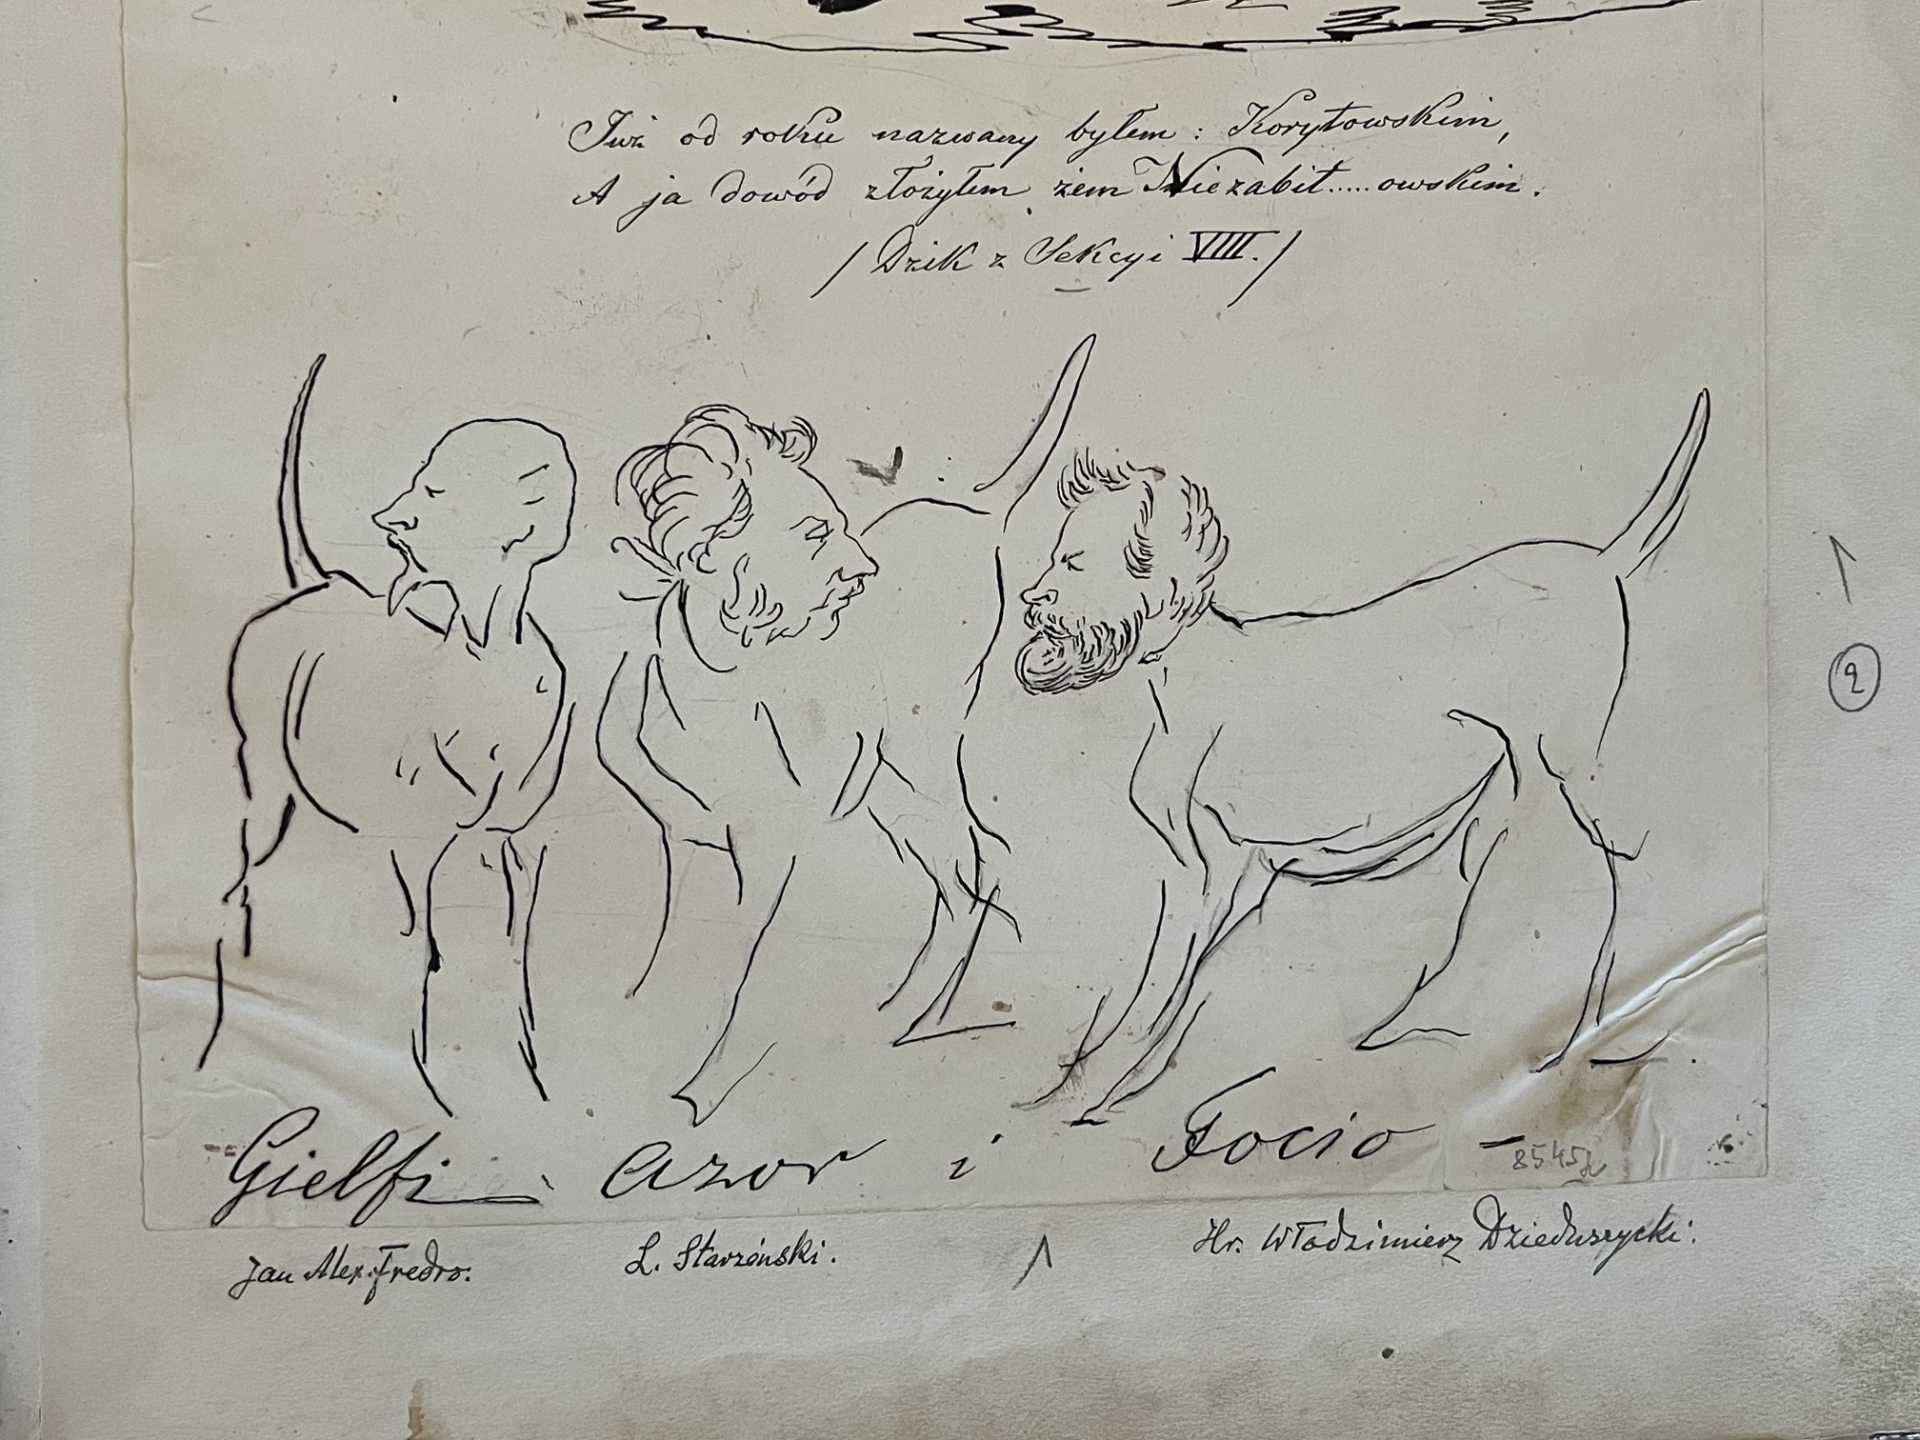 Już od roku nazwany byłem: Korytowskim,
A ja dowód złożyłem żem Niezabit.....owskim.
/Dzik z Sekcyi VIII./
2
Gielfi - Azor i Focio -
8545
Jan Alex. Fredro.
L. Starzénski.
Hr. Włodzimierz Dzieduszycki.